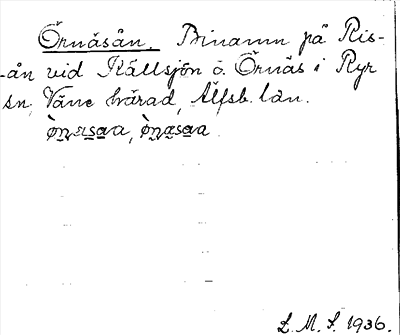 Örnäsån. Binamn på Ris-
-ån vid Källsjön o. Örnäs i Ryr
sn, Väne härad, Älfsb. län.
L. M. S. 1936.